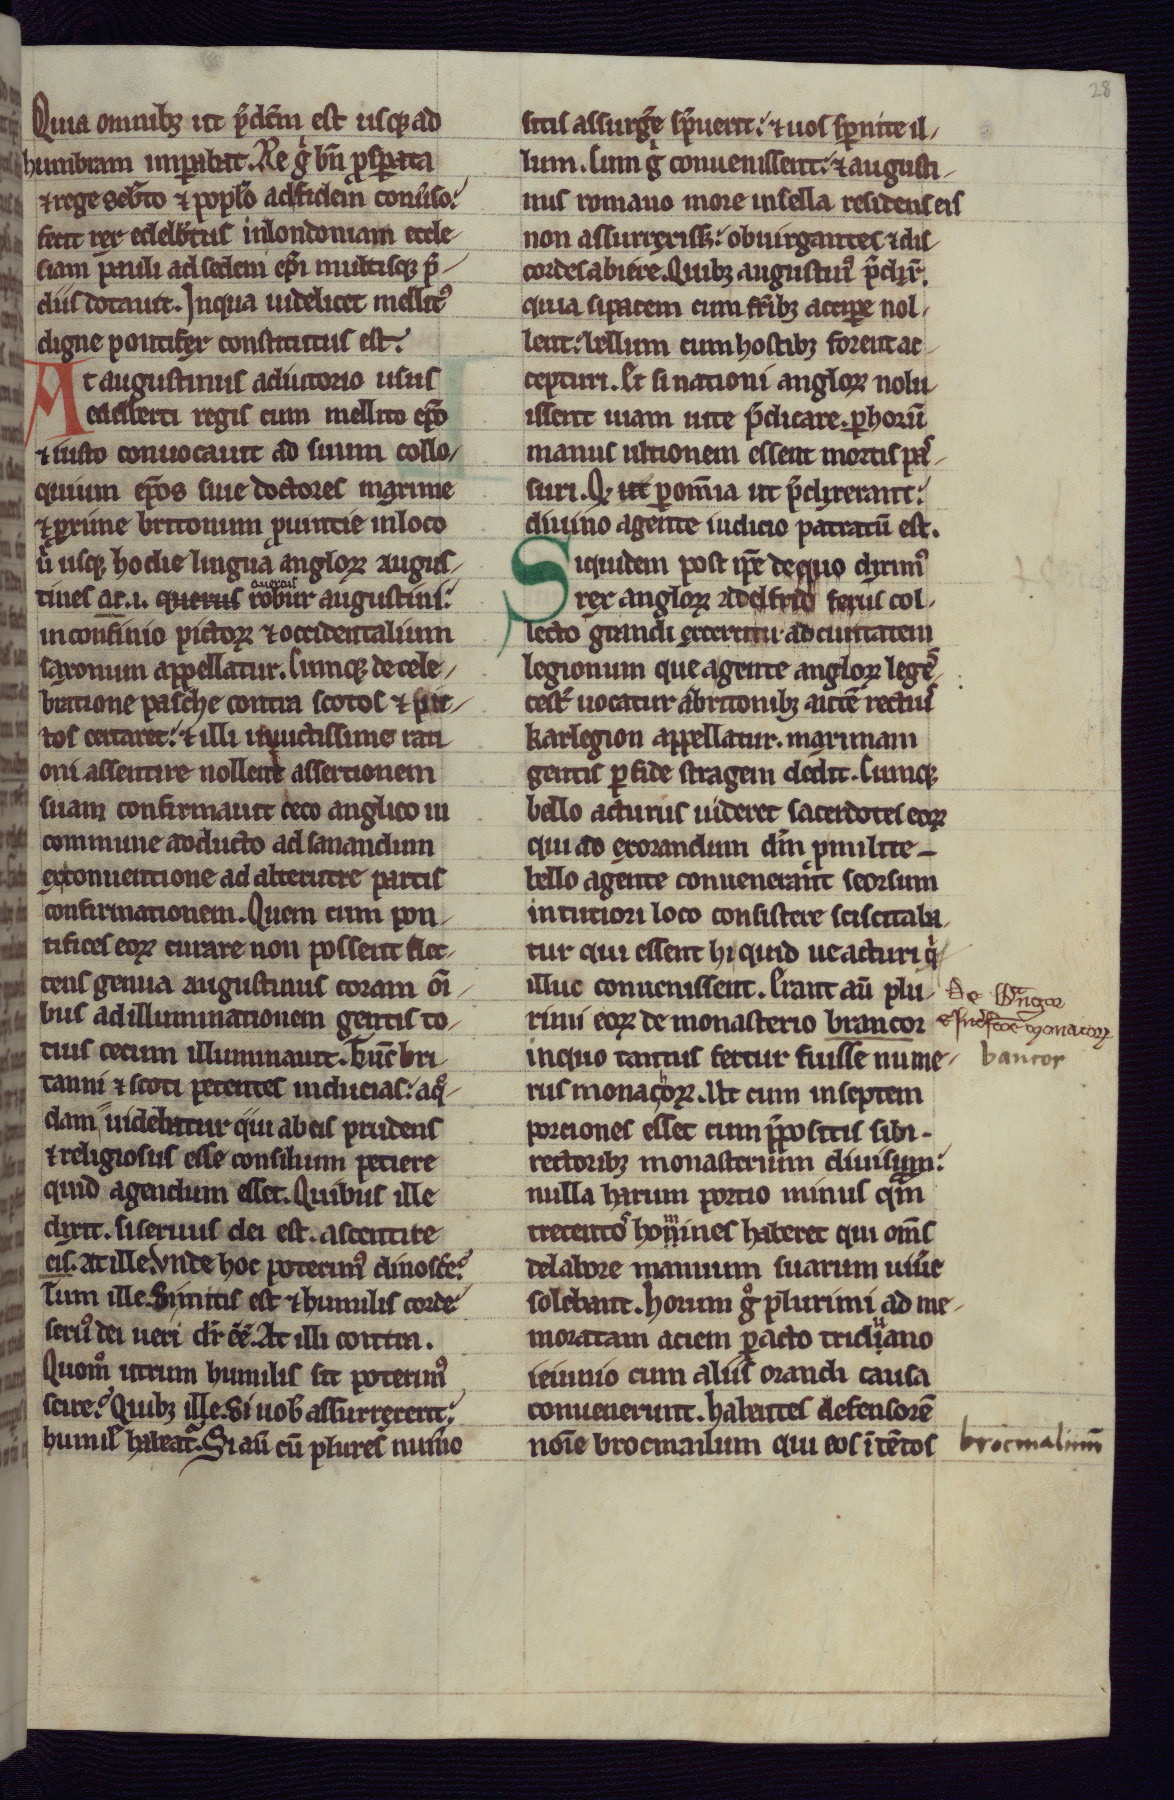 28
Quia omnibꝫ ut p̄dc̄m est usqꝫ ad
humbram imꝑabat. Re g̊ bn̄ ꝓsꝑata
⁊ rege seb̄to ⁊ poplo ad fidem conuso.
fecit rex edelb̄tus in londoniam eccle-
siam pauli ad sedem ep̄i multisqꝫ p̄-
diis dotauit. In qua uidelicet mellitꝰ
digne pontifex constitutus est.
At augustinus adiutorio usus
edelberti regis cum mellito ep̄o
⁊ iusto conuocauit ad suum collo-
quium ep̄os siue doctores maxime
⁊ ꝓxime britonum ꝓuintie in loco
ū usqꝫ hodie lingua angloꝝ augus-
tines ac .i. querus robur augustini.
auersus
in confinio pictoꝝ ⁊ occidentalium
saxonum appellatur. Cumqꝫ de cele-
bratione pasche contra scotos ⁊ pic-
tos certaret. ⁊ illi inuictissime rati
oni assentire nollent assertionem
suam confirmauit ceco anglico in
commune adducto ad sanandum
ex conuentione ad alterutre partis
confirmationem. Quem cum pon-
tifices eoꝝ curare non possent flec-
tens genua augustinus coram om̄-
bus ad illuminationem gentis to-
tius cecum illuminauit. Tunc bri
tanni ⁊ scoti petentes inducias. a q-
dam uidebatur qui ab eis prudens
⁊ religiosus esse consilium petiere
quid agendum esset. Quibus ille
dixit. si seruus dei est. ascentite
eis. At ille. Vnde hoc poterimꝰ dinosce.
Tum ille. Si mitis est ⁊ humilis corde
seruꝰ dei ueri dr̄ eē. At illi contra.
Quom̊ utrum humilis sit poterimꝰ
scire. Quibꝫ ille. Si uob̄ assurrexerit.
humil̄ habeat̄. Si au̅ cū plures numo
sitis assurg̅e sp̄uerit. ⁊ uos sꝑnite il-
lum. Cum g̊ conuenissent. ⁊ augusti-
nus romano more in sella residens eis
non assurrexiss̄. obiurgantes ⁊ dis
cordes abiere. Quibꝫ augustinꝰ p̄dix̄.
quia si pacem cum fr̄ibꝫ accipe nol-
lent. bellum cum hostibꝫ forent ac-
cepturi. Et si nationi angloꝝ nolu
issent uiam uite p̄dicare. ꝑ horū
manus ultionem essent mortis pas-
suri. Qd ut ꝑ om̄ia ut p̄dixerant.
diuino agente iudicio patratū est.
Siquidem post ip̄e de quo diximꝰ
rex angloꝝ adelfrid ferus col-
lecto grandi exercitu ad ciuitatem
legionum que a gente angloꝝ leges-
cestr̄ uocatur a britonibꝫ autē rectius
karlegion appellatur. maximam
gentis ꝑfide stragem dedit. Cumqꝫ
bello acturus uideret sacerdotes eoꝝ
qui ad exorandum dm̄ ꝓ milite
bello agente conuenerant seorsum
in tutiori loco consistere sciscitaba
tur qui essent hi quid ue acturi q̊
illuc conuenissent. Erant au̅ plu-
rimi eoꝝ de monasterio brancor
in quo tantus fertur fuisse nume-
rus monachoꝝ. Ut cum in septem
porciones esset cum p̄positis sibi
rectoribꝫ monasterium diuisum.
nulla harum portio minus qm̄
trecentos homines haberet qui om̄s
de labore manuum suarum uiuere
solebant. Horum g̊ plurimi ad me-
moratam aciem ꝑacto triduano
ieiunio cum aliis orandi causa
conuenerunt. habentes defensorē
noīe brocmailum qui eos ītētos
bancor
brocmaliū